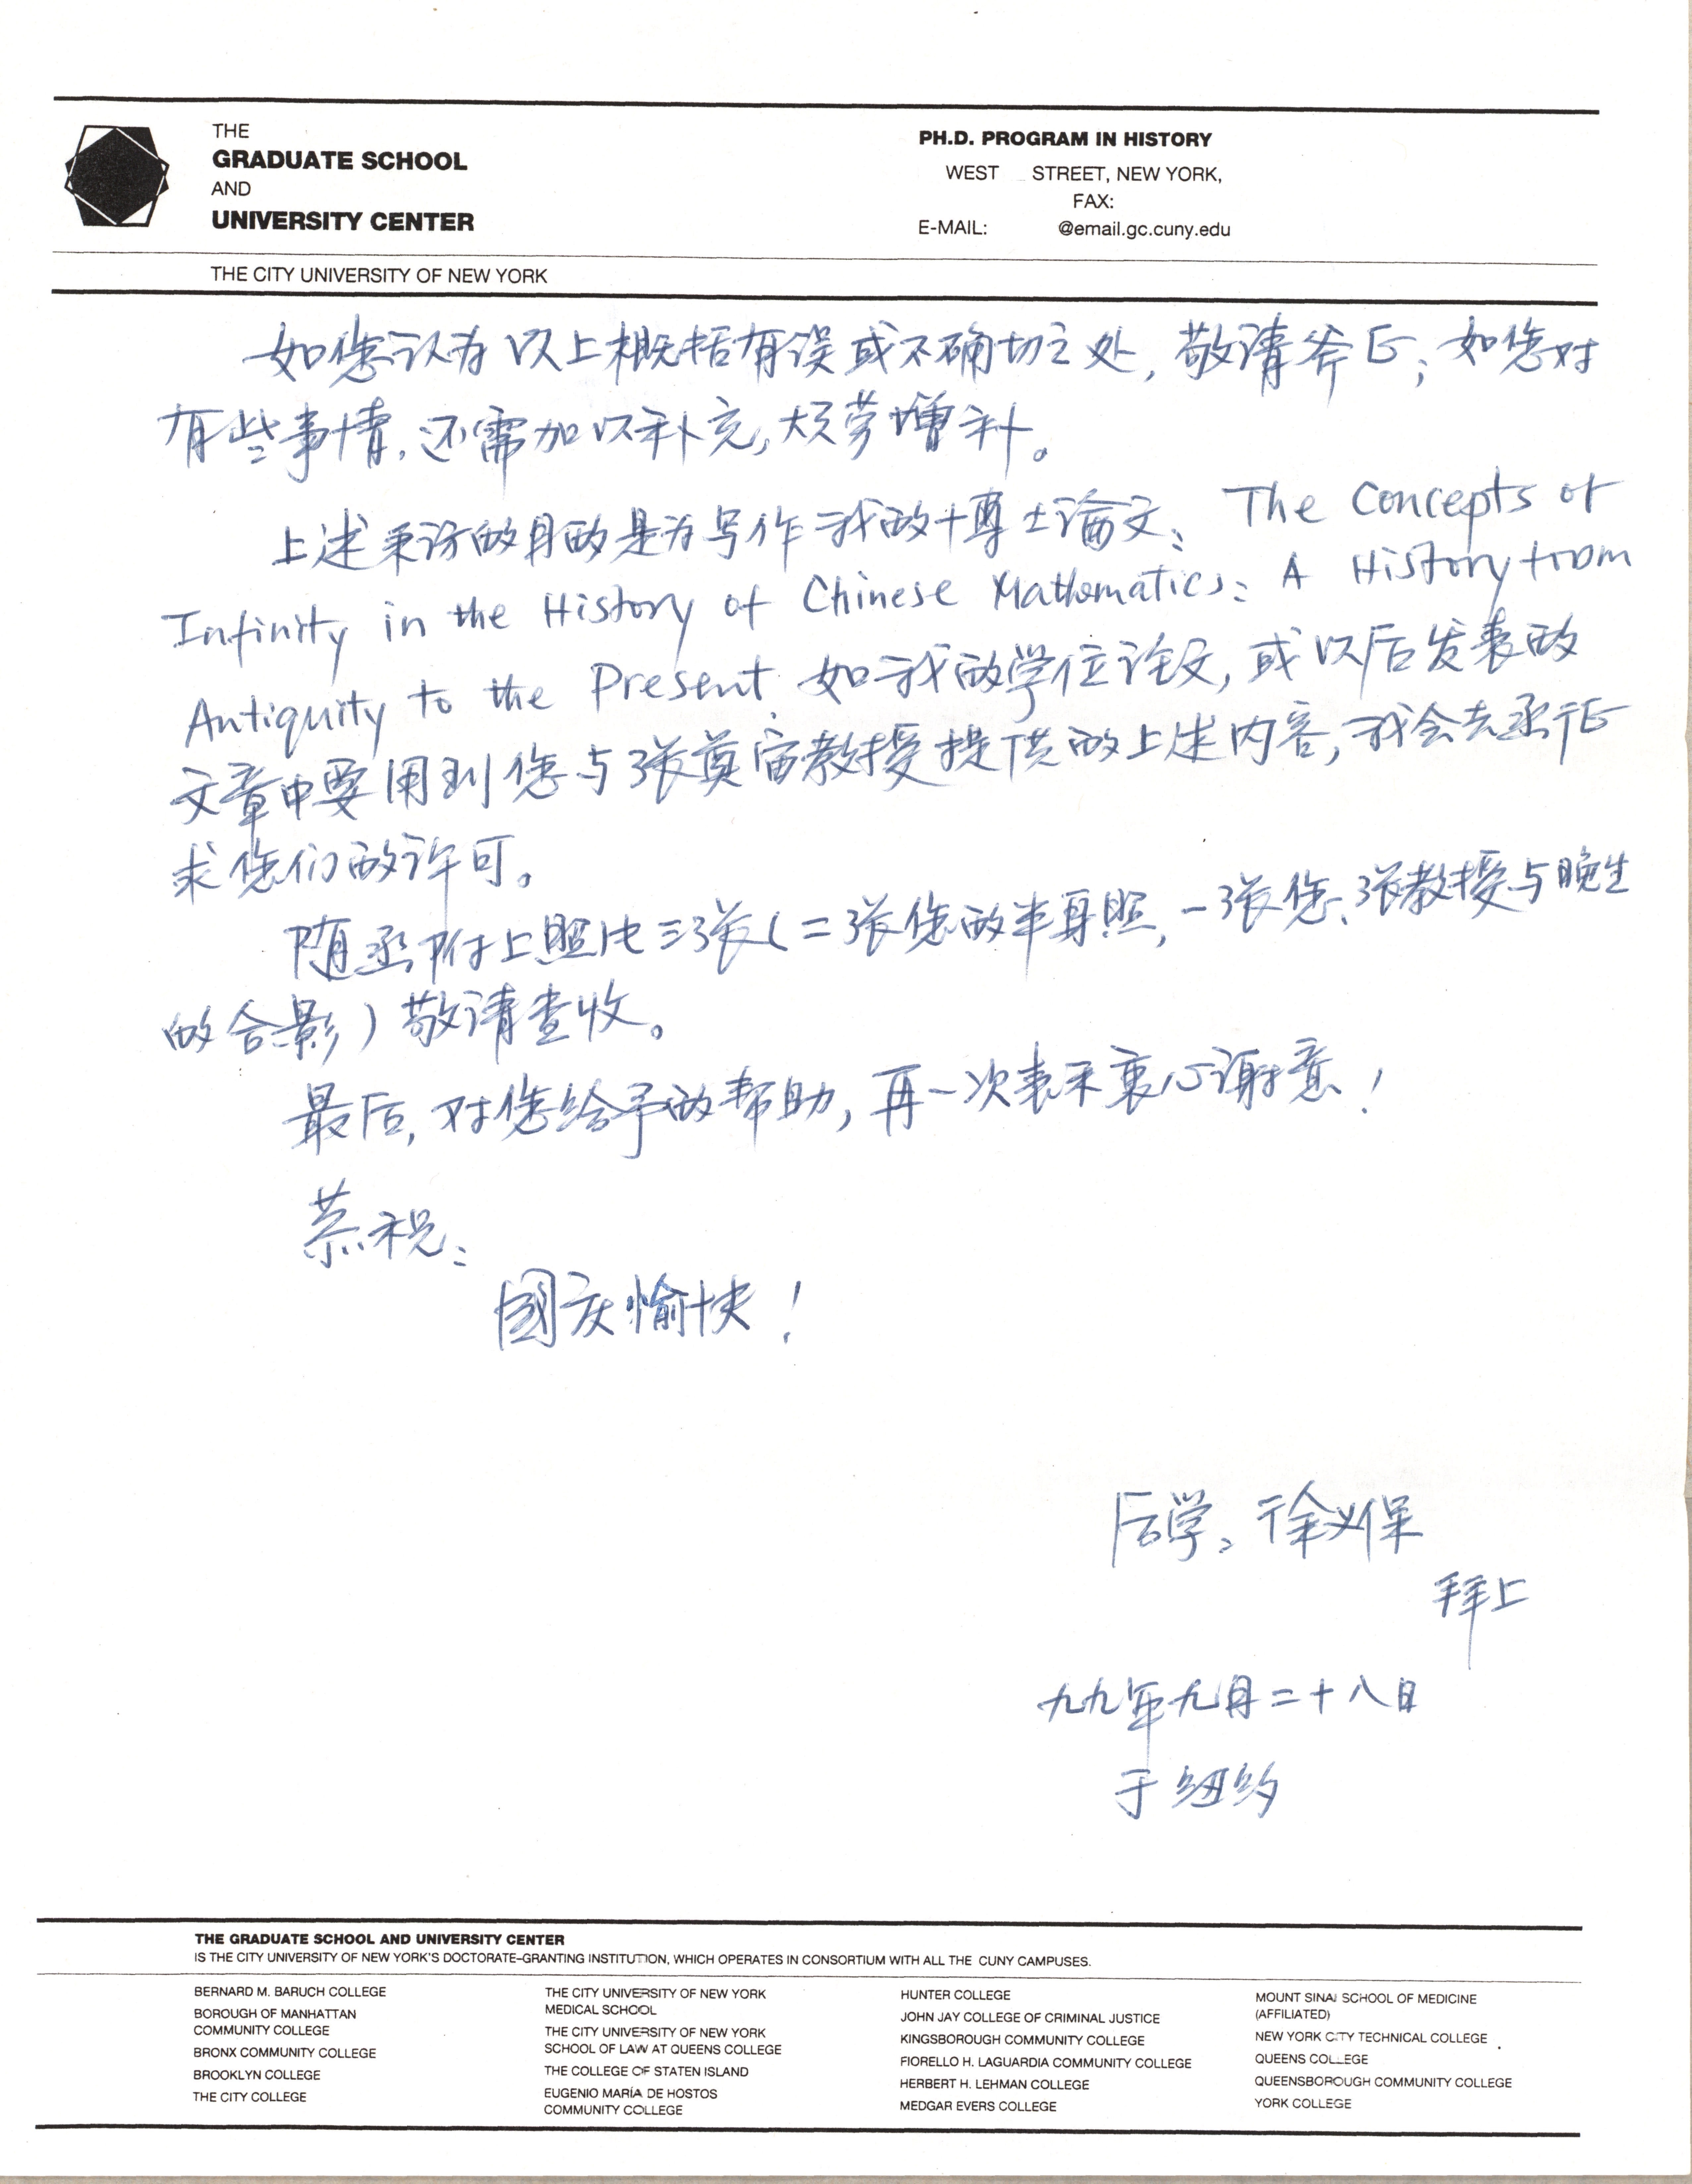 THE
GRADUATE SCHOOL
AND
UNIVERSITY CENTER
THE CITY UNIVERSITY OF NEW YORK
PH.D. PROGRAM IN HISTORY
WEST STREET, NEW YORK,
FAX:
E-MAIL: @email.gc.cuny.edu
如您认为以上概括有误或不确切之处,敬请斧正;如您对
有些事情,还需加以补充,烦劳增补。
上述采访的目的是为写作我的博士论文: The Concepts of
Infinity in the History of Chinese Mathematics: A History from
Antiquity to the Present. 如我的学位论文,或以后发表的
文章中要用到您与张奠宙教授提供的上述内容,我会去函征
求您们的许可。
随函附上照片三张(二张您的半身照,一张您、张教授与晚生
的合影)敬请查收。
最后,对您给予的帮助,再一次表示衷心谢意!
恭祝:
國庆愉快!
后学:徐义保
拜上
九九年九月二十八日
于纽约
THE GRADUATE SCHOOL AND UNIVERSITY CENTER
IS THE CITY UNIVERSITY OF NEW YORK'S DOCTORATE-GRANTING INSTITUTION, WHICH OPERATES IN CONSORTIUM WITH ALL THE CUNY CAMPUSES.
BERNARD M. BARUCH COLLEGE
BOROUGH OF MANHATTAN
COMMUNITY COLLEGE
BRONX COMMUNITY COLLEGE
BROOKLYN COLLEGE
THE CITY COLLEGE
THE CITY UNIVERSITY OF NEW YORK
MEDICAL SCHOOL
THE CITY UNIVERSITY OF NEW YORK
SCHOOL OF LAW AT QUEENS COLLEGE
THE COLLEGE OF STATEN ISLAND
EUGENIO MARÍA DE HOSTOS
COMMUNITY COLLEGE
HUNTER COLLEGE
JOHN JAY COLLEGE OF CRIMINAL JUSTICE
KINGSBOROUGH COMMUNITY COLLEGE
FIORELLO H. LAGUARDIA COMMUNITY COLLEGE
HERBERT H. LEHMAN COLLEGE
MEDGAR EVERS COLLEGE
MOUNT SINAI SCHOOL OF MEDICINE
(AFFILIATED)
NEW YORK CITY TECHNICAL COLLEGE
QUEENS COLLEGE
QUEENSBOROUGH COMMUNITY COLLEGE
YORK COLLEGE